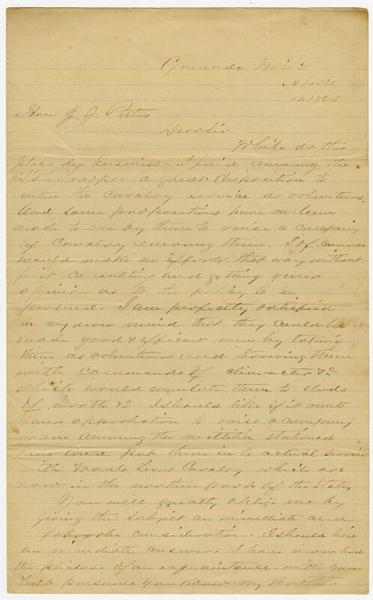 Grenada Miss
April
12 1863
Hon J. J. Pettus
Dear Sir
While at this
place on business I find among the
State Troops a great disposition to
enter the Cavalry service as volunteers,
and some propositions have been
made to me by them to raise a company
of Cavalry among them. I of course
would make no efforts that way without
first consulting and getting your
opinion as to the policy to be
pursued. I am perfectly satisfied
in my own mind that they could be
made good & efficient men by taking
them as volunteers and throwing them
with commands of character &c
which would them to deeds
of worth &c I should like if it meets
your approbation to raise a company
from among the militia stationed
here and put them in to actual service
with Texas Cavalry which are
now in the northern part of the State,
You will greatly oblige me by
giving this subject an immediate and
favorable consideration. I should like
an immediate answer. I have never had
the pleasure of an acquaintance with you
but presume you know my Brother